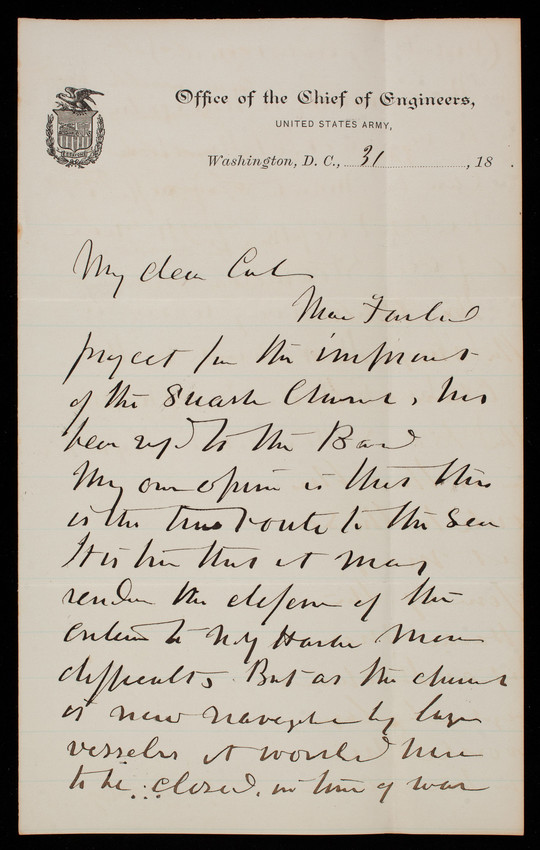 Office of the Chief of Engineers,
UNITED STATES ARMY,
Washington, D. C., 31, 18 .
My dear Col
Mac Farland
project for the improvmt
of the Channel, has
been refd to the Board
My own opinion is that this
is the true route to the Sea
It is true that it may
render the defense of the
entrance to N.Y Harbor more
difficult, But as the channel
is now navigable by large
vessels it would have
to be closed, in time of war